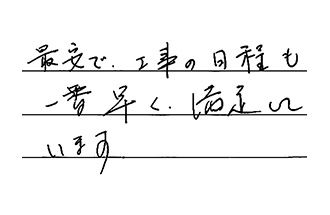 最安で、工事の日程も
一番早く、満足して
います